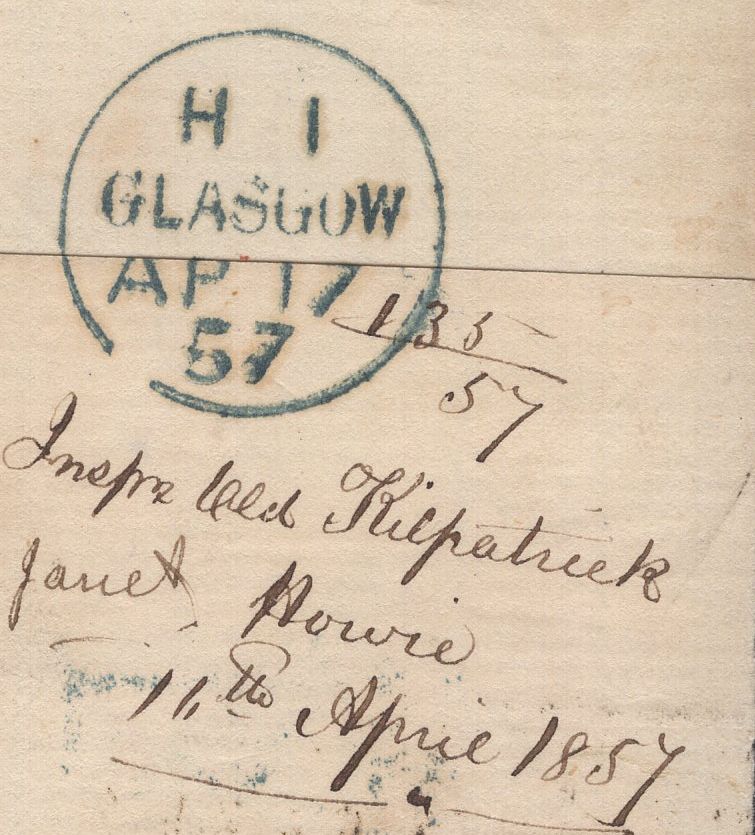 H 1
GLASGOW
AP 17
57
135
57
Inspr Old Kilpatrick
Janet Howie
16th April 1857